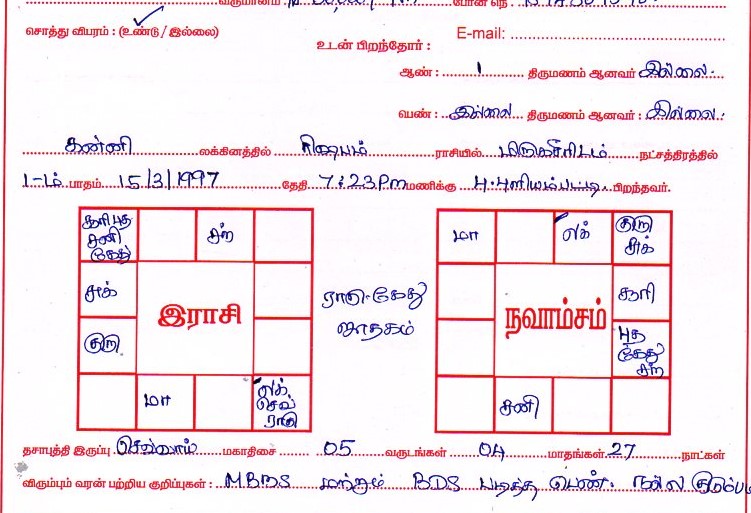 வருமானம்
சொத்து விபரம் : (உண்டு / இல்லை)
உடன் பிறந்தோர் :
E-mail:
ஆண் : 1 திருமணம் ஆனவர் இல்லை.
பெண் : இல்லை திருமணம் ஆனவர் : இல்லை.
கன்னி லக்கினத்தில் ரிஷபம் ராசியில் மிருகசீரிடம் நட்சத்திரத்தில்
1-ம் பாதம் 15/3/1997 தேதி 7:23 Pm மணிக்கு பிறந்தவர்.
சூரி புத சனி கேது
சந்
சுக்
குரு
மா
லக் செவ் ராகு
இராசி
ராகு-கேது ஜாதகம்
மா
லக்
குரு சுக்
சூரி
புத கேது சந்
சனி
நவாம்சம்
தசாபுத்தி இருப்பு செவ்வாய் மகாதிசை 05 வருடங்கள் 04 மாதங்கள் 27 நாட்கள்
விரும்பும் வரன் பற்றிய குறிப்புகள் : MBBS மற்றும் BDS படித்த பெண். நல்ல